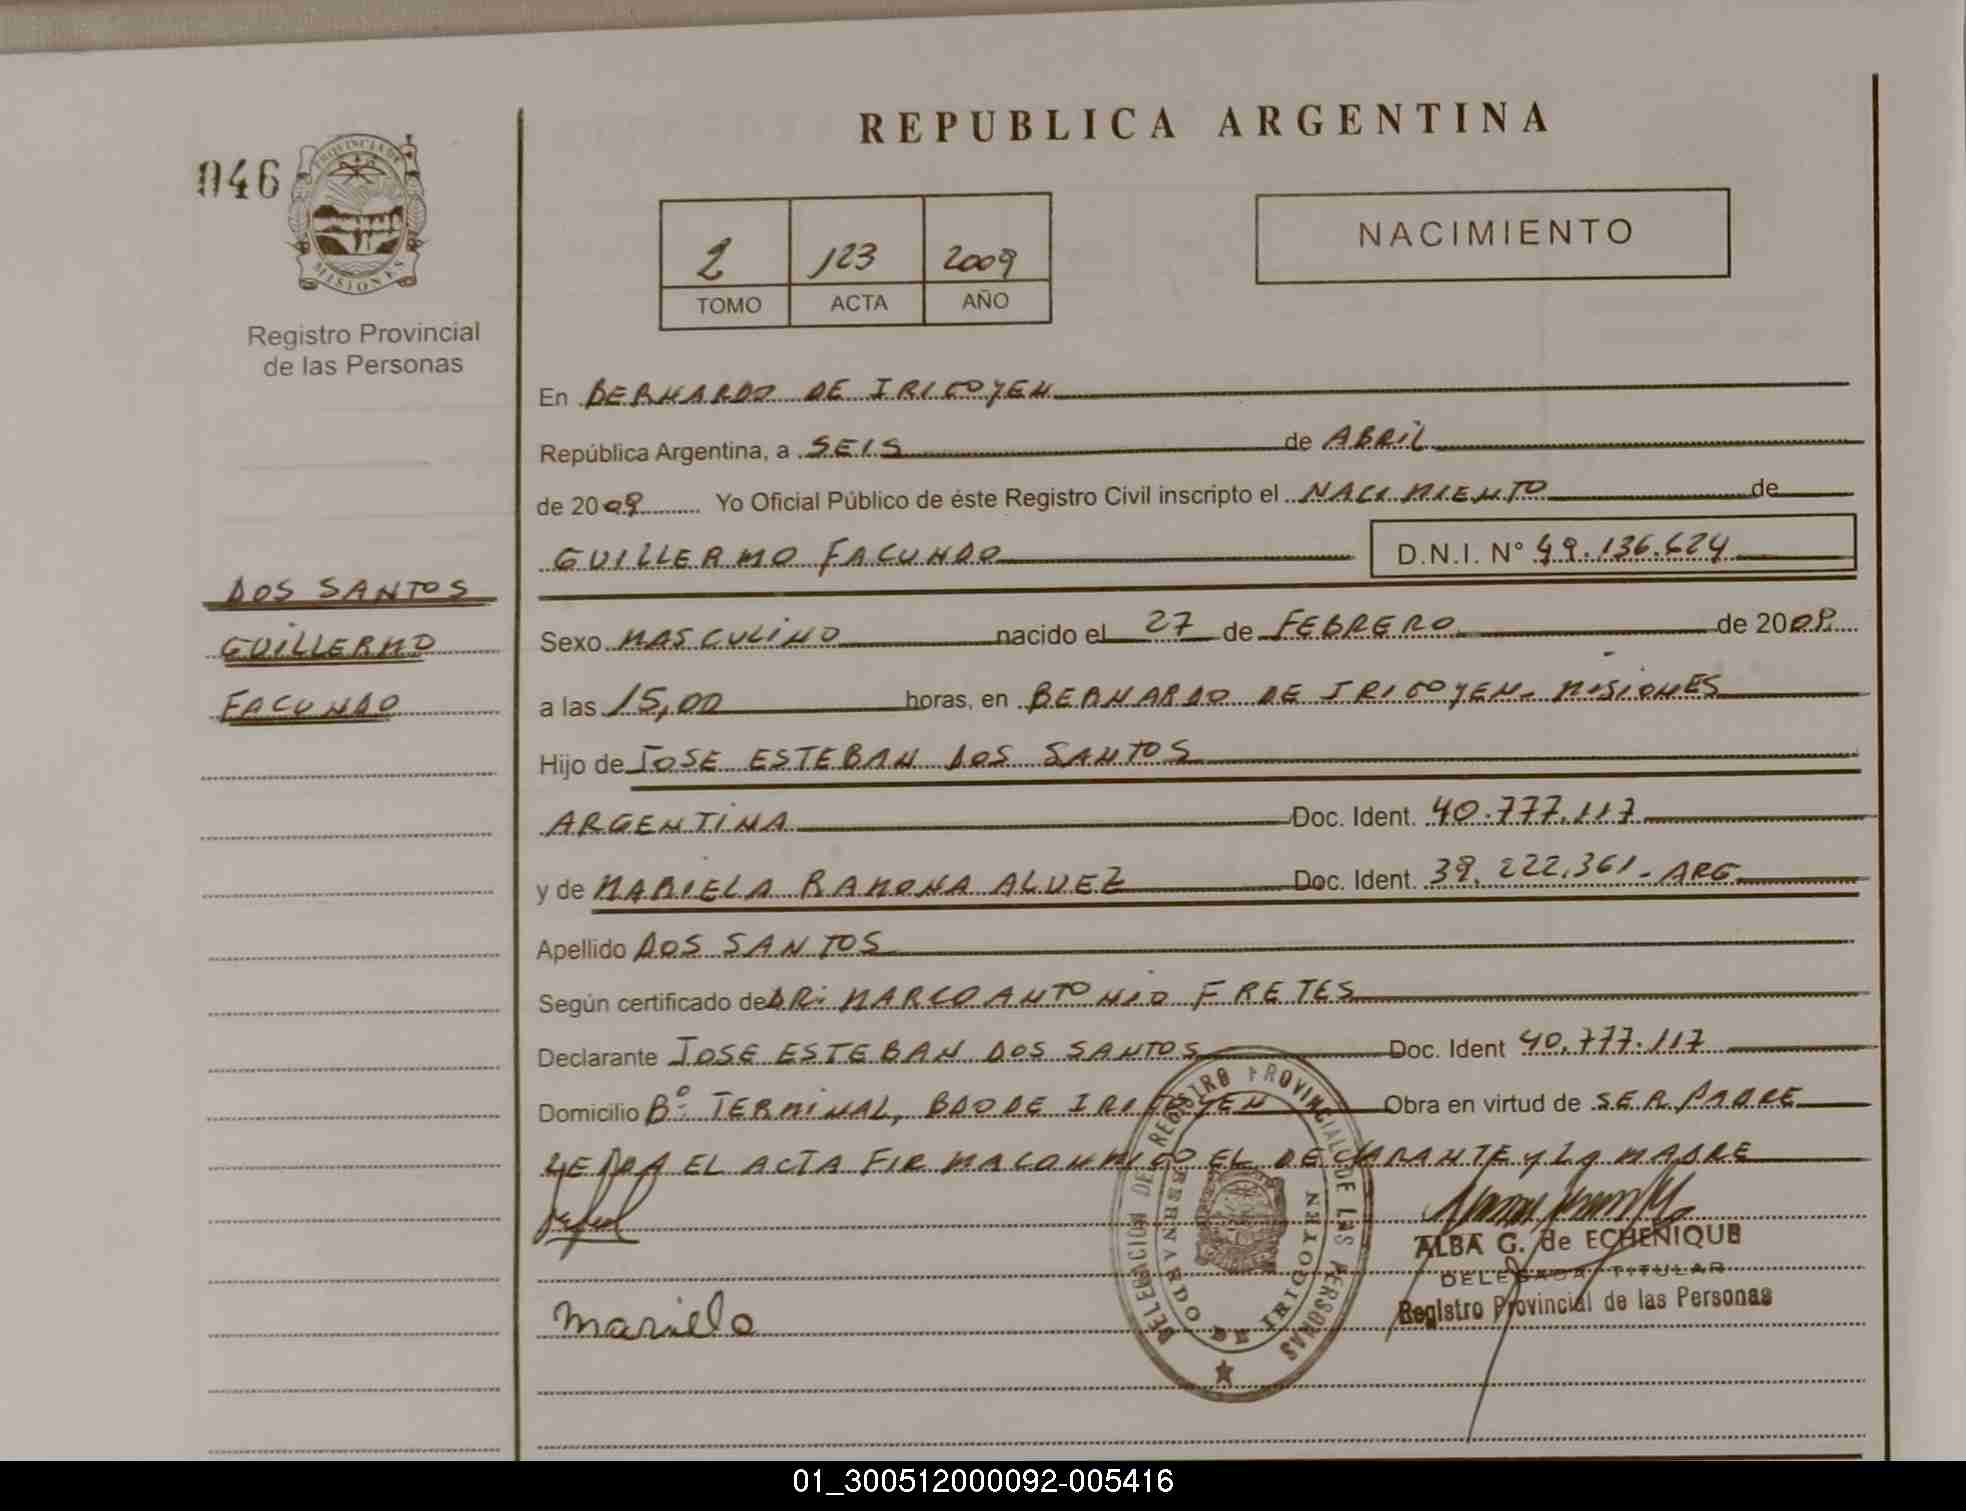 REPUBLICA ARGENTINA
046
PROVINCIA DE MISIONES
Registro Provincial
de las Personas
2 123 2009
TOMO ACTA AÑO
NACIMIENTO
En BERNARDO DE IRIGOYEN
República Argentina, a SEIS de ABRIL
de 2009 Yo Oficial Público de éste Registro Civil inscripto el NACIMIENTO de
GUILLERMO FACUNDO D.N.I. N° 49.136.624
DOS SANTOS
GUILLERMO
FACUNDO
Sexo MASCULINO nacido el 27 de FEBRERO de 2009
a las 15,00 horas, en BERNARDO DE IRIGOYEN - MISIONES
Hijo de JOSE ESTEBAN DOS SANTOS
ARGENTINA Doc. Ident. 40.777.117
y de MARIELA RAMONA ALVEZ Doc. Ident. 39.222.361 - ARG.
Apellido DOS SANTOS
Según certificado de DR. MARCO ANTONIO FRETES
Declarante JOSE ESTEBAN DOS SANTOS Doc. Ident 40.777.117
Domicilio B° TERMINAL, BDO DE IRIGOYEN Obra en virtud de SER PADRE
LEIDA EL ACTA FIRMA CONMIGO EL DECLARANTE y LA MADRE
DELEGACION DE REGISTRO PROVINCIAL DE LAS PERSONAS
BERNARDO DE IRIGOYEN
ALBA G. de ECHENIQUE
DELEGADA TITULAR
Registro Provincial de las Personas
Mariela
01_300512000092-005416